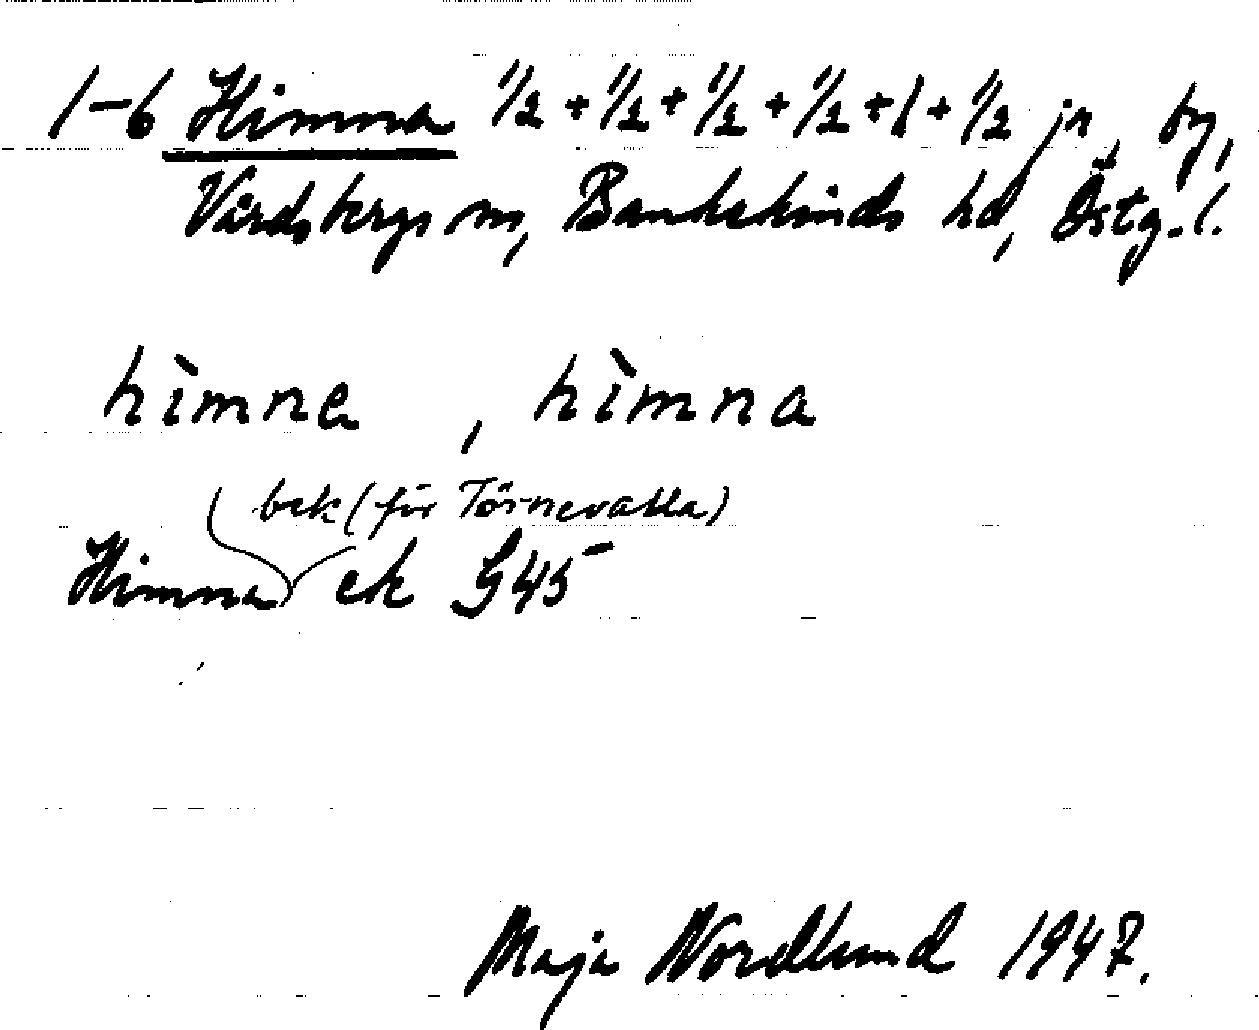 1-6 Himna 1/2 + 1/2 + 1/2 + 1/2 + 1 + 1/2 jn, by,
Vårdsbergs sn, Bankekinds hd, Östg. l.
hìmna, hìmna
bek (för Törnevalla)
Himna ek G45
Maja Nordlund 1947.